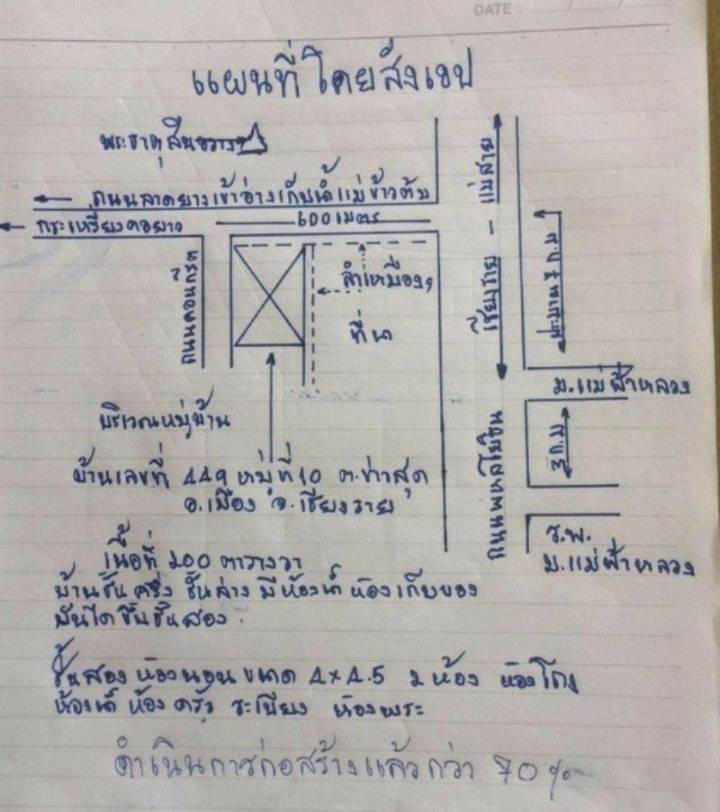 DATE :
แผนที่โดยสังเขป
พระธาตุ
ถนนลาดยางเข้าอ่างเก็บน้ำแม่ข้าวต้ม
600 เมตร
กระเหรี่ยงดอยยาว
ถนนคอนกรีต
ลำเหมือง
ที่นา
เชียงราย - แม่สาย
ม.แม่ฟ้าหลวง
บริเวณหมู่บ้าน
บ้านเลขที่ 449 หมู่ที่ 10 ต.ท่าสุด
อ.เมือง จ.เชียงราย
ถนนพหลโยธิน
ร.พ.
ม.แม่ฟ้าหลวง
เนื้อที่ 200 ตารางวา
บ้านชั้นครึ่ง ชั้นล่าง มีห้องน้ำ ห้องเก็บของ
บันไดขึ้นชั้นสอง
ชั้นสอง ห้องนอน ขนาด 4x4.5 2 ห้อง ห้องโถง
ห้องน้ำ ห้องครัว ระเบียง ห้องพระ
ดำเนินการก่อสร้างแล้วกว่า 70%